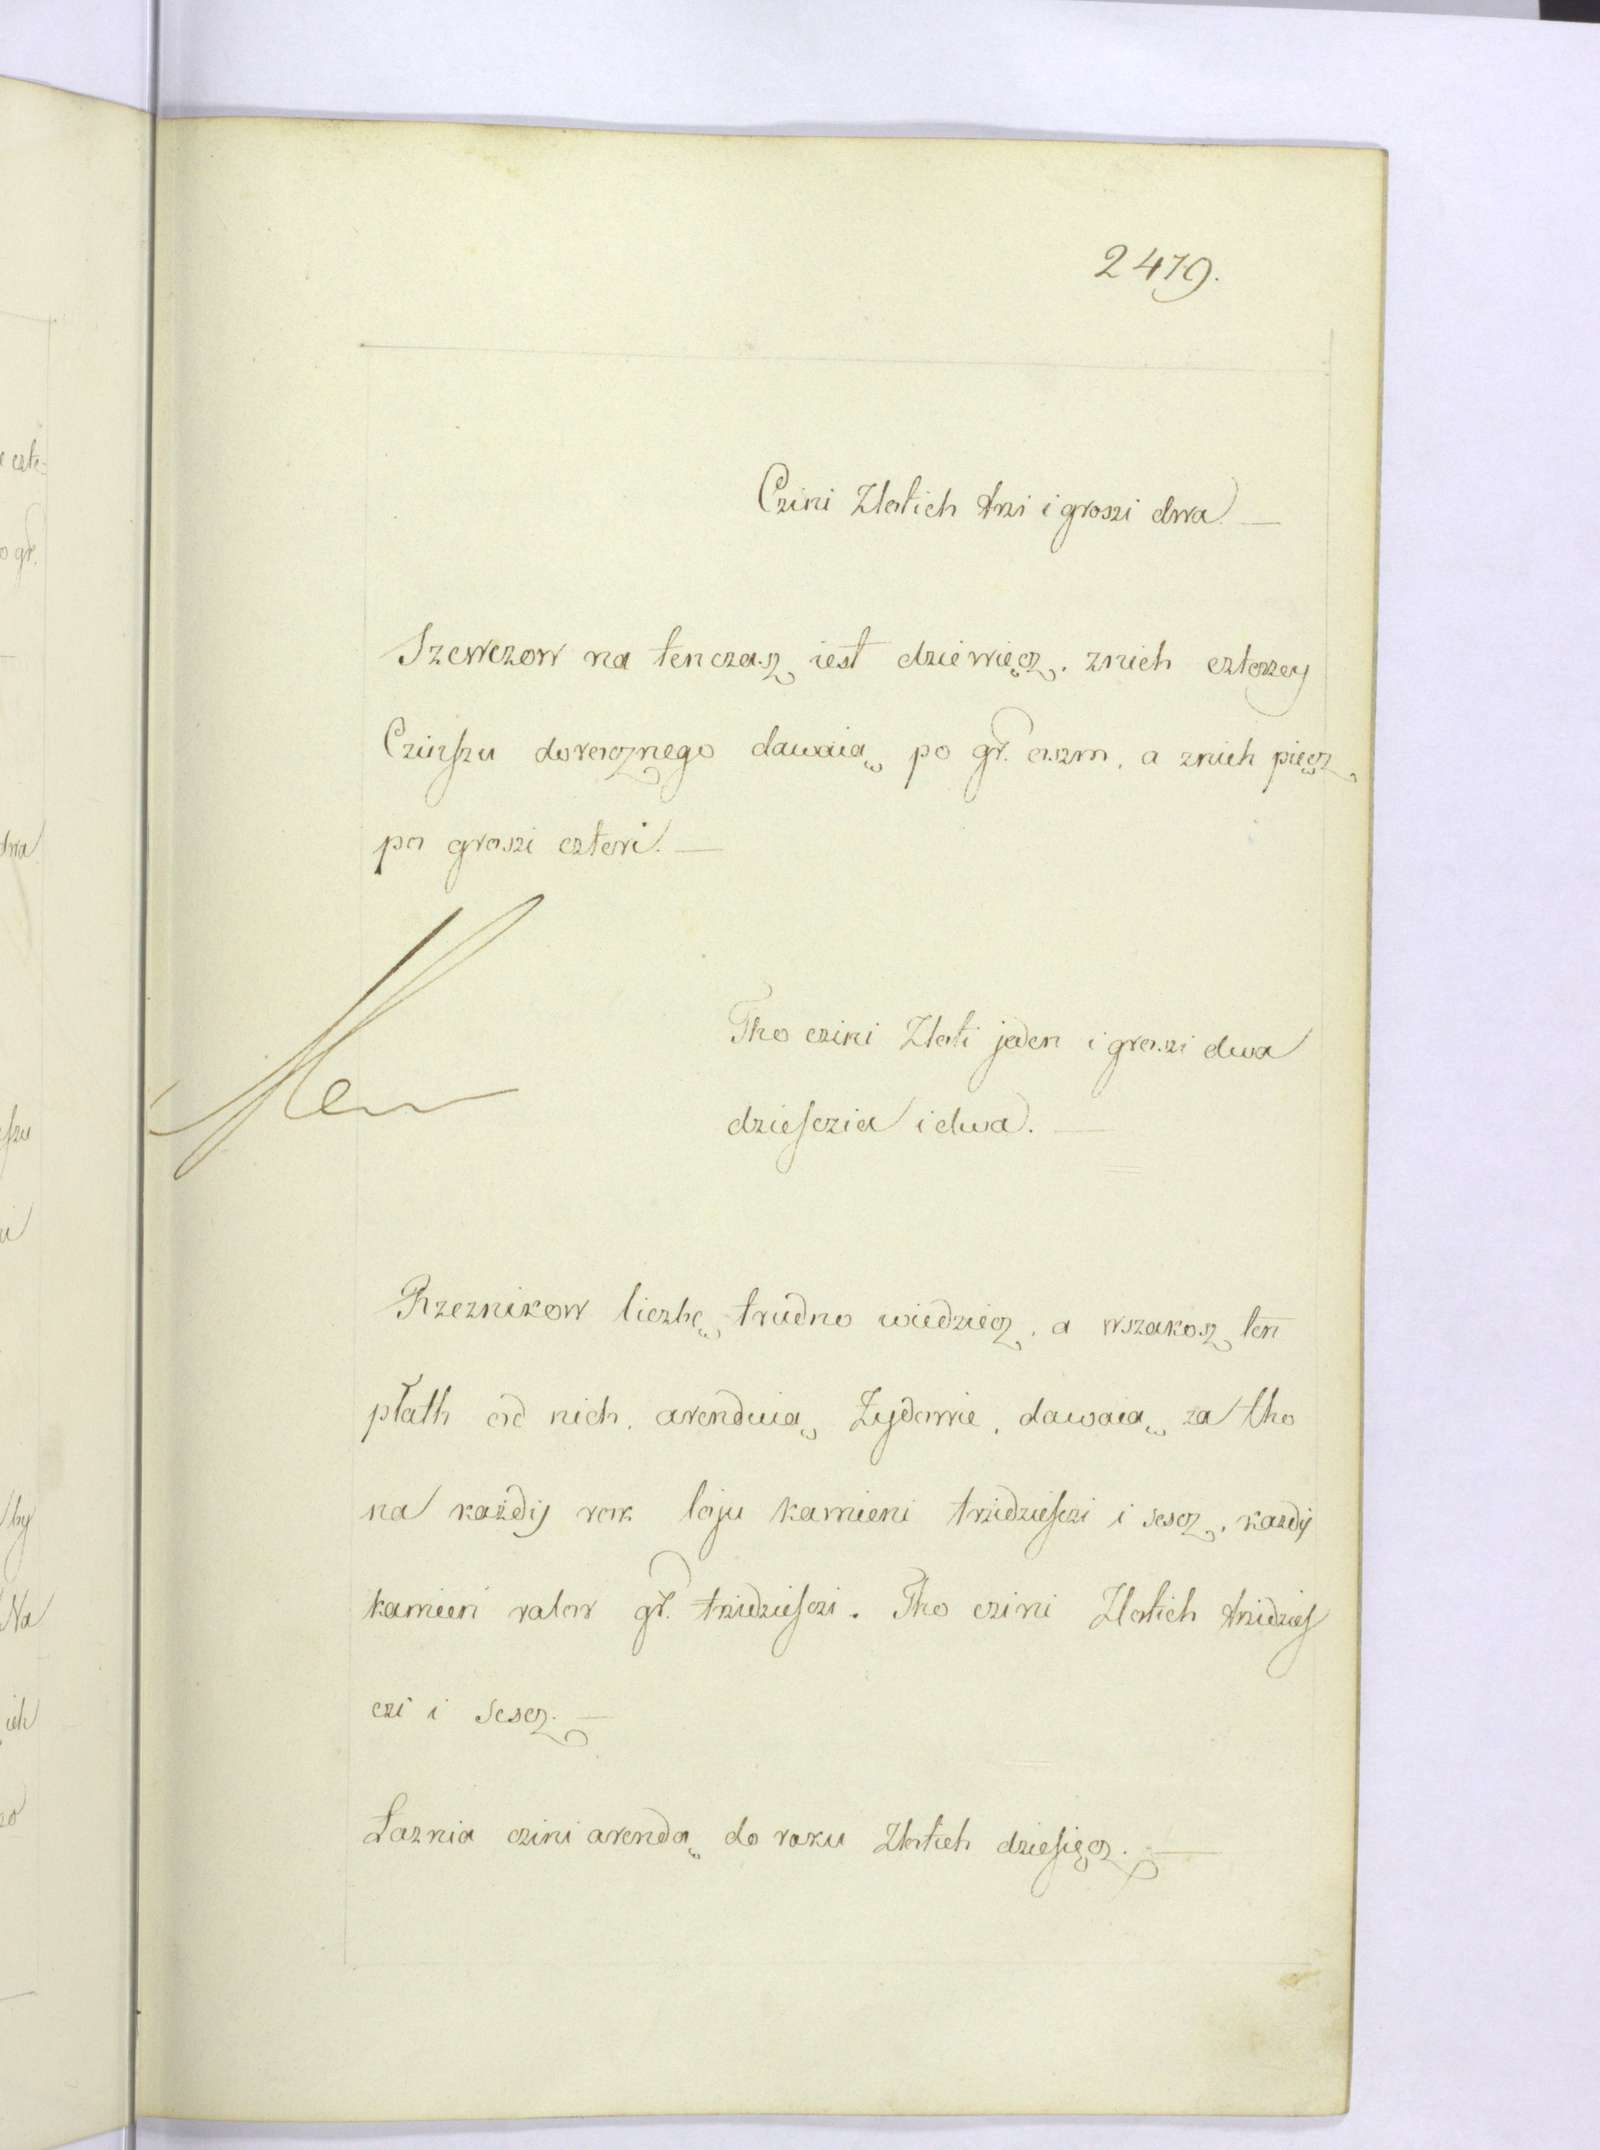 2479.
Czini Zlotich trzi i groszi dwa. —
Szewczow na tenczasz iest dziewięcz. znich czterzey
Czinszu dorocznego dawaią po gr. oszm, a znich pięcz
po groszi cztori. —
Tho czini Zloti jeden i groszi dwa
dziesczia i dwa. —
Rzeznikow liczbę trudno wiedziecz, a wszakosz ten
płath od nich, arenduią Żydowie, dawaią za tho
na każdy rok łoju kamieni trzidziesczi i sescz, kazdy
kamień valor gr. trzidziesczi. Tho czini Zlotich trzidzies
czi i sescz. —
Łaznia czini arendą do roku Zlotich dziesięcz. —